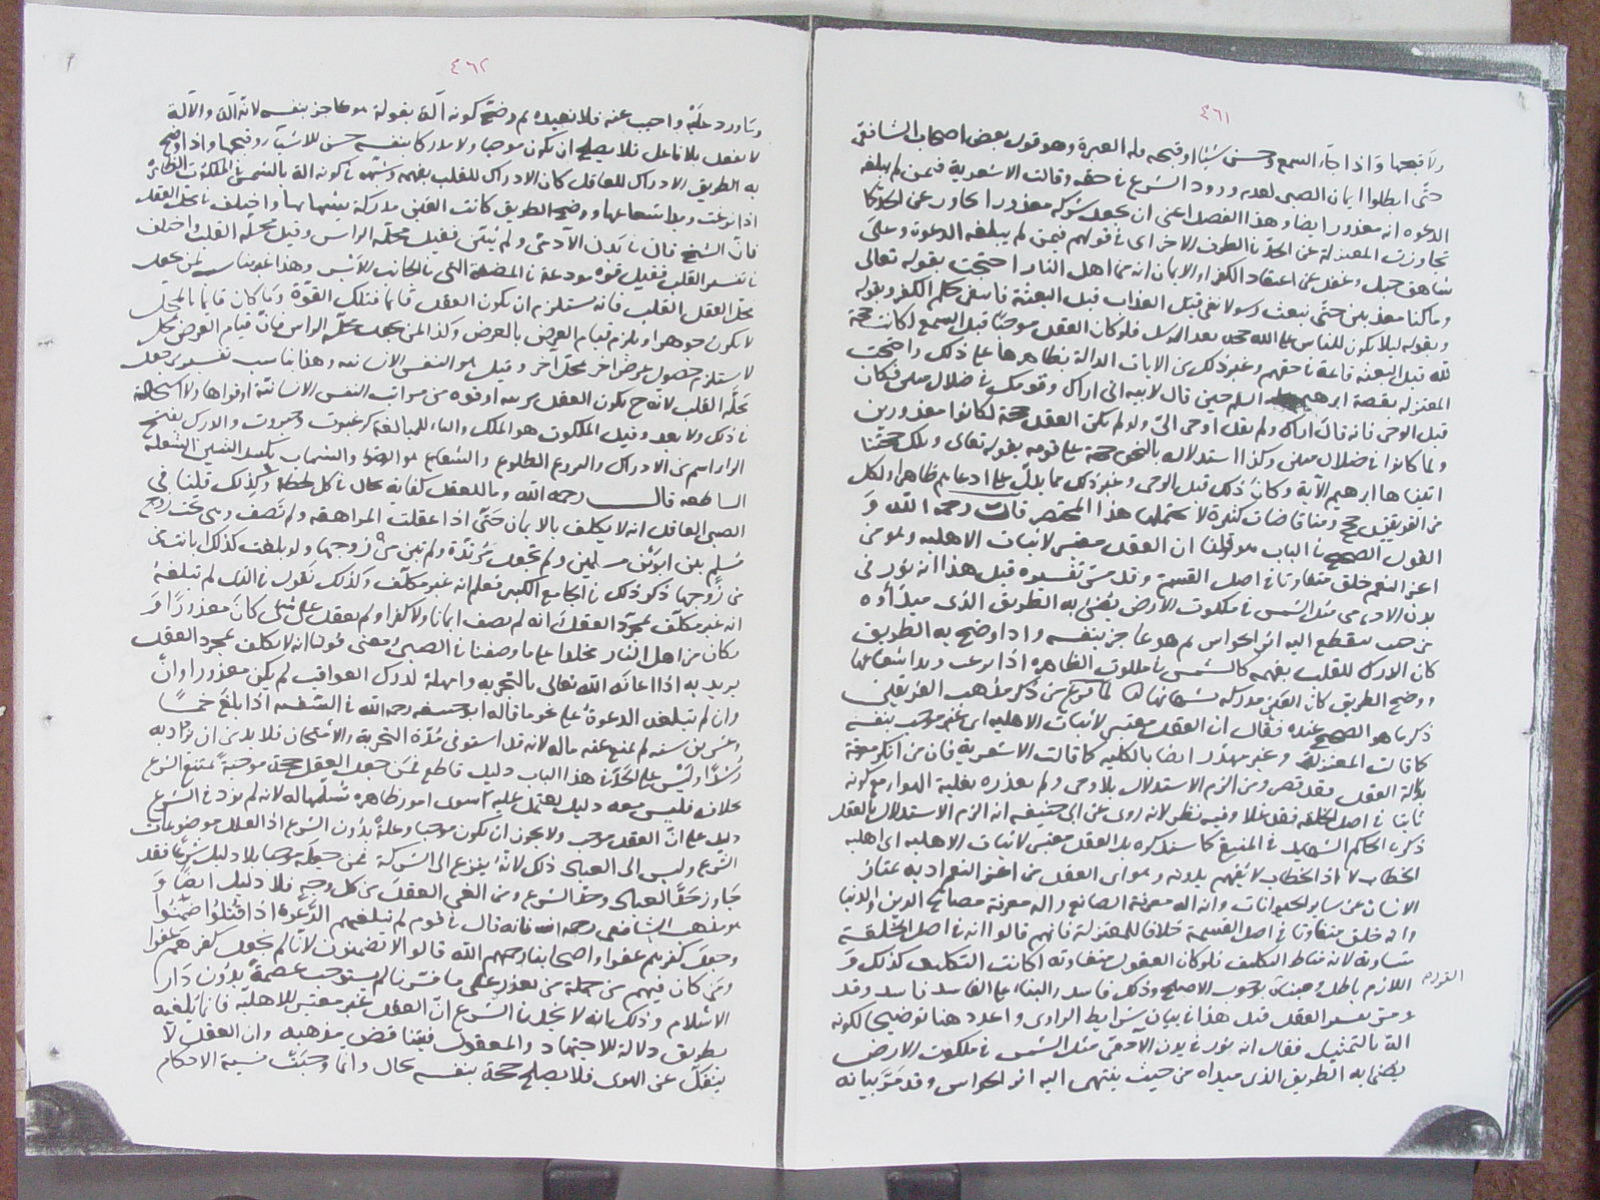 ٤٦١
ولا قبحها واذا جاء السمع وحسن شيئا او قبحه فله العبرة وهو قول بعض اصحاب الشافعي
حتى ابطلوا ايمان الصبي لعدم ورود الشرع في حقه وقالت الاشعرية فيمن لم يبلغه
الدعوة انه معذور ايضا وهذا الفصل اعنى ان يجعل شركه معذورا تجاوز عن الحد كما
تجاوزت المعتزلة عن الحد في الطرف الاخر اى في قولهم فيمن لم يبلغه الدعوة وعلى
شاهق جبل وغفل عن اعتقاد الكفر او الايمان انه من اهل النار احتجت بقوله تعالى
وما كنا معذبين حتى نبعث رسولا نفى قبل العذاب قبل البعثة فانتفى حكم الكفر وبقوله
وبقوله ليلا يكون للناس على الله حجة بعد الرسل فلو كان العقل موجبا قبل السمع لكانت حجة
لله قبل البعثة قائمة في حقهم وغير ذلك من الايات الدالة بظاهرها على ذلك واحتجت
المعتزلة بقصة ابرهيم حين قال لابيه انى اراك وقومك في ضلال مبين وكان
قبل الوحى فانه قال اراك ولم يقل اوحى الىّ ولو لم يكن العقل حجة لكانوا معذورين
ولما كانوا في ضلال مبين وكذا استدلاله بالنجوم حجة على قومه بقوله تعالى وتلك حجتنا
اتيناها ابرهيم الآية وكان ذلك قبل الوحى وغير ذلك مما يدل على ادعائهم ظاهرا ولكل
من الفريقين حجج ومناقاضات كثيرة لا يحتملها هذا المختصر قال رحمه الله و
القول الصحيح في الباب هو قولنا ان العقل معتبر لاثبات الاهلية وهو من
اعز النعم خلق متفاوتا في اصل القسمة وقد مرّ تفسيره قبل هذا انه نور في
بدن الادمى مثل الشمس في ملكوت الارض يضئ به الطريق الذى مبدأوه
من حيث ينقطع اليه اثر الحواس ثم هو عاجز بنفسه واذا وضح به الطريق
كان الدرك للقلب بفهمه كالشمس في الملكوت الظاهرة اذا بزغت وبدا شعاعها
ووضح الطريق كان العين مدركة بشعاعها لما فرغ من ذكر مذهب الفريقين
ذكر ما هو الصحيح عنده فقال ان العقل معتبر لاثبات الاهلية اى غير موجب بنفسه
كما قالت المعتزلة وغير مهدر ايضا بالكلية كما قالت الاشعرية فان من انكر معرفة
بدلالة العقل فقد قصر ومن الزم الاستدلال بلا وحى ولم يعذره بغلبة الهوا مع كونه
ثابتا في اصل الخلقة فقد غلا وفيه نظر لانه روى عن ابى حنيفة انه الزم الاستدلال بالعقل
ذكره الحاكم الشهيد في المنتقى كما سنذكره بل العقل معتبر لاثبات الاهلية اى اهلية
الخطاب لا اذ الخطاب لا يفهم بدونه وهو اى العقل من اعز النعم اذ به يمتاز
الانسان عن ساير الحيوانات وانه آلة معرفة الصانع وآلة معرفة مصالح الدين والدنيا
وانه خلق متفاوتا في اصل القسمة خلافا للمعتزلة فانهم قالوا انه في اصل الخلقة
متساوية لانه مناط التكليف فلو كان العقول متفاوتة لكانت التكليف كذلك و
اللازم باطل ومبناه بوجوب الاصلح وذلك فاسد والبناء على الفاسد فاسد وقد
اللازم
مرّ تفسير العقل قبل هذا في بيان شرايط الراوى واعاده هنا توضيحا لكونه
آلة بالتمثيل فقال انه نور في بدن الآدمى مثل الشمس في ملكوت الارض
يضئ به الطريق الذى مبداه من حيث ينتهى اليه اثر الحواس وقد مرّ بيانه
٤٦٢
وما ورد عليه واجيب عنه فلا نعيده ثم وضح كونه آلة بقوله هو عاجز بنفسه لانه آلة والآلة
لا يفعل بلا فاعل فلا يصلح ان يكون موجبا ولا مدركا بنفسه حسن الاشياء وقبحها واذا وضح
به الطريق الادراك للعاقل كان الادراك للقلب بفهمه وشبهه في كونه الة بالشمس في الملكوت الظاهرة
اذا بزغت وبدا شعاعها ووضح الطريق كانت العين مدركة بشعاعها واختلف في محل العقل
فانّ الشيخ قال في بدن الآدمى ولم يُبيّن فقيل محله الراس وقيل محله القلب واختلف
في تفسير القلب فقيل قوة مودعة في المضغة التى في الجانب الايسر وهذا لا يناسب لمن يجعل
محل العقل القلب فانه يستلزم ان يكون العقل قائما بتلك القوّة وما كان قائما بالمحل
لا يكون جوهرا ويلزم قيام العرض بالعرض وكذا لمن يجعل محله الراس فانّ قيام العرض بمحل
لا يستلزم حصول عرض اخر بمحل آخر وقيل هو النفس الانسانية وهذا يناسب تفسير من جعل
محله القلب لانه ح يكون العقل مرتبة او قوة من مراتب النفس الانسانية او قواها ولا استحالة
في ذلك ولا بعد وقيل الملكوت هو الملك والتاء للمبالغة كرغبوت ورهبوت والدرك بفتح
الراء اسم من الادراك والبزوغ الطلوع والشعاع هو الضوء والشهاب بكسر الشين الشعلة
الساطعة قال رحمه الله وما للعقل كفاية بحال في كل لحظة وكذلك قلنا في
الصبي العاقل انه لا يكلف بالايمان حتّى اذا عقلت المراهقة ولم تصف وهى تحت زوج
مُسلم بين ابوين مسلمين ولم تجعل مرتدّة ولم تبن من زوجها ولو بلغت كذلك لبانت
من زوجها ذكر ذلك في الجامع الكبير فعلم انه غير مكلّف وكذلك نقول في الذى لم تبلغه
انه غير مكلّف بمجرد العقل وانه لم يصف ايمانا ولا كفرا ولم يعقل على شئ كان معذورًا و
كان من اهل النار مخلدا على ما وصفنا في الصبي ومعنى قولنا انه لا يكلف بمجرد العقل
يريد به اذا اعانه الله تعالى بالتجربة وامهله لدرك العواقب لم يكن معذورا وانّ
وان لم تبلغه الدعوةُ على نحو ما قاله ابو حنيفة رحمه الله في السّفيه اذا بلغ خمسًا
وعشرين سنة لم يمنع عنه ماله لانه قد استوفى مُدّة التجربة والامتحان فلا بد من ان يزداد به
رُشدًا وليس على الحدّ في هذا الباب دليل قاطع فمن جعل العقل حجة موجبةً يمتنع الشرع
بخلافه فليس معه دليل يعتمد عليه سوى امور ظاهرة نسلّمها له لانه لم نود في الشرع
دليل على انّ العقل موجب ولا يجوز ان يكون موجبا وعلة بدون الشرع اذ العلل موضوعات
الشرع وليس الى العباد ذلك لانّه ينزع الى الشركة فمن جعله موجبا بلا دليل شرعا فقد
جاوز حدّ العباد وحدّ الشرع ومن الغى العقل من كل وجهٍ فلا دليل ايضا و
هو مذهب الشافعى رحمه الله فانه قال في قوم لم تبلغهم الدّعوة اذا قُتلوا ضُمنوا
وجعل كفرهم عفوا واصحابنا رحمهم الله قالوا لا تضمنون لانا لم نجعل كفرهم عفوا
ومَن كان فيهم من جملة من يعذر على ما فسّرنا لم يستوجب عصمةً بدون دار
الاسلام وذلك بانه لا نجد في الشرع انّ العقل غير معتبر للاهلية فانما نلغيه
بطريق دلالة للاجتهاد والمعقول فيتناقض مذهبه وان العقل لا
ينفكّ عن الهوى فلا يصلح حجة بنفسه بحال وانما وجبت نسبة الاحكام